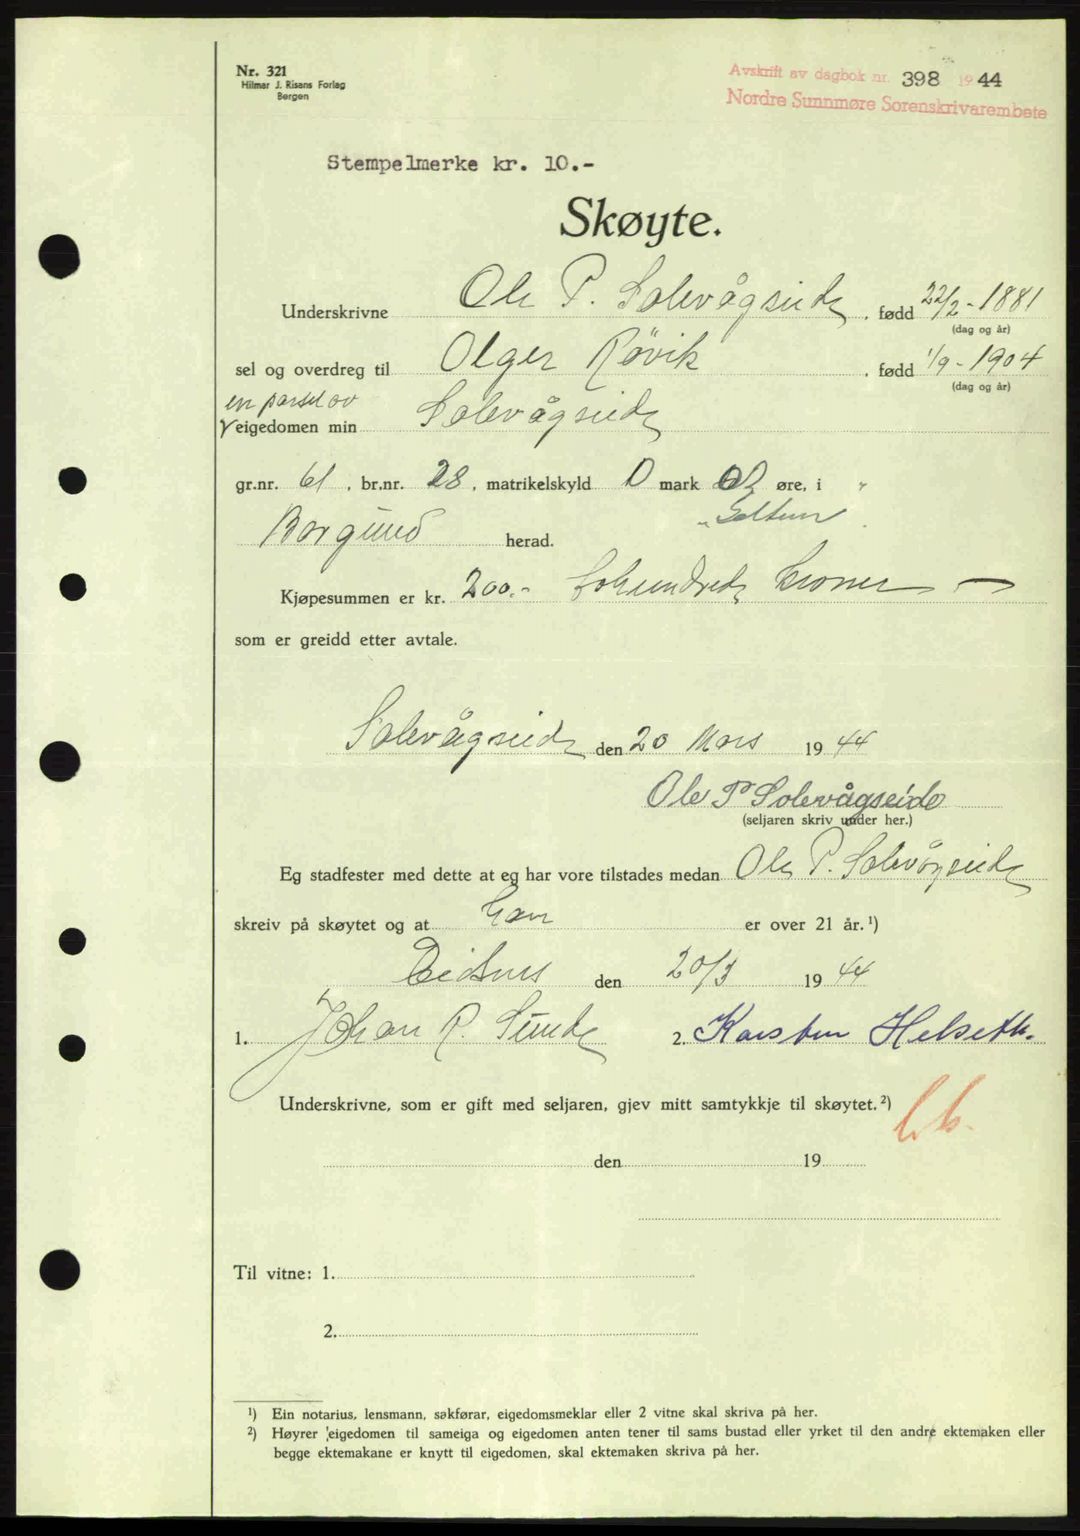 Nr. 321
Hilmar J. Risans Forlag
Bergen
Avskrift av dagbok nr. 398 1944
Nordre Sunnmøre Sorenskrivarembete
Stempelmerke kr. 10.-
Skøyte.
Underskrivne Ole P. Solevågseide, fødd 22/2-1881
(dag og år)
sel og overdreg til Olger Røvik, fødd 1/9-1904
(dag og år)
en parsel av
eigedomen min Solevågseide
gr.nr. 61, br.nr. 28, matrikelskyld 0 mark 02 øre, i
Borgund herad.
Kjøpesummen er kr. 200.- Tohundrede kroner —
som er greidd etter avtale.
Solevågseide den 20 Mars 1944
Ole P Solevågseide
(seljaren skriv under her.)
Eg stadfester med dette at eg har vore tilstades medan Ole P. Solevågseide
skreiv på skøytet og at han er over 21 år.¹)
Eidsnes den 20/3 1944
1. Johan R. Sunde 2. Karsten Helseth.
Underskrivne, som er gift med seljaren, gjev mitt samtykkje til skøytet.²)
den 19
Til vitne: 1.
2.
¹) Ein notarius, lensmann, sakførar, eigedomsmeklar eller 2 vitne skal skriva på her.
²) Høyrer eigedomen til sameiga og eigedomen anten tener til sams bustad eller yrket til den andre ektemaken eller
begge ektemakane er knytt til eigedomen, skal ektemaken skriva på her.